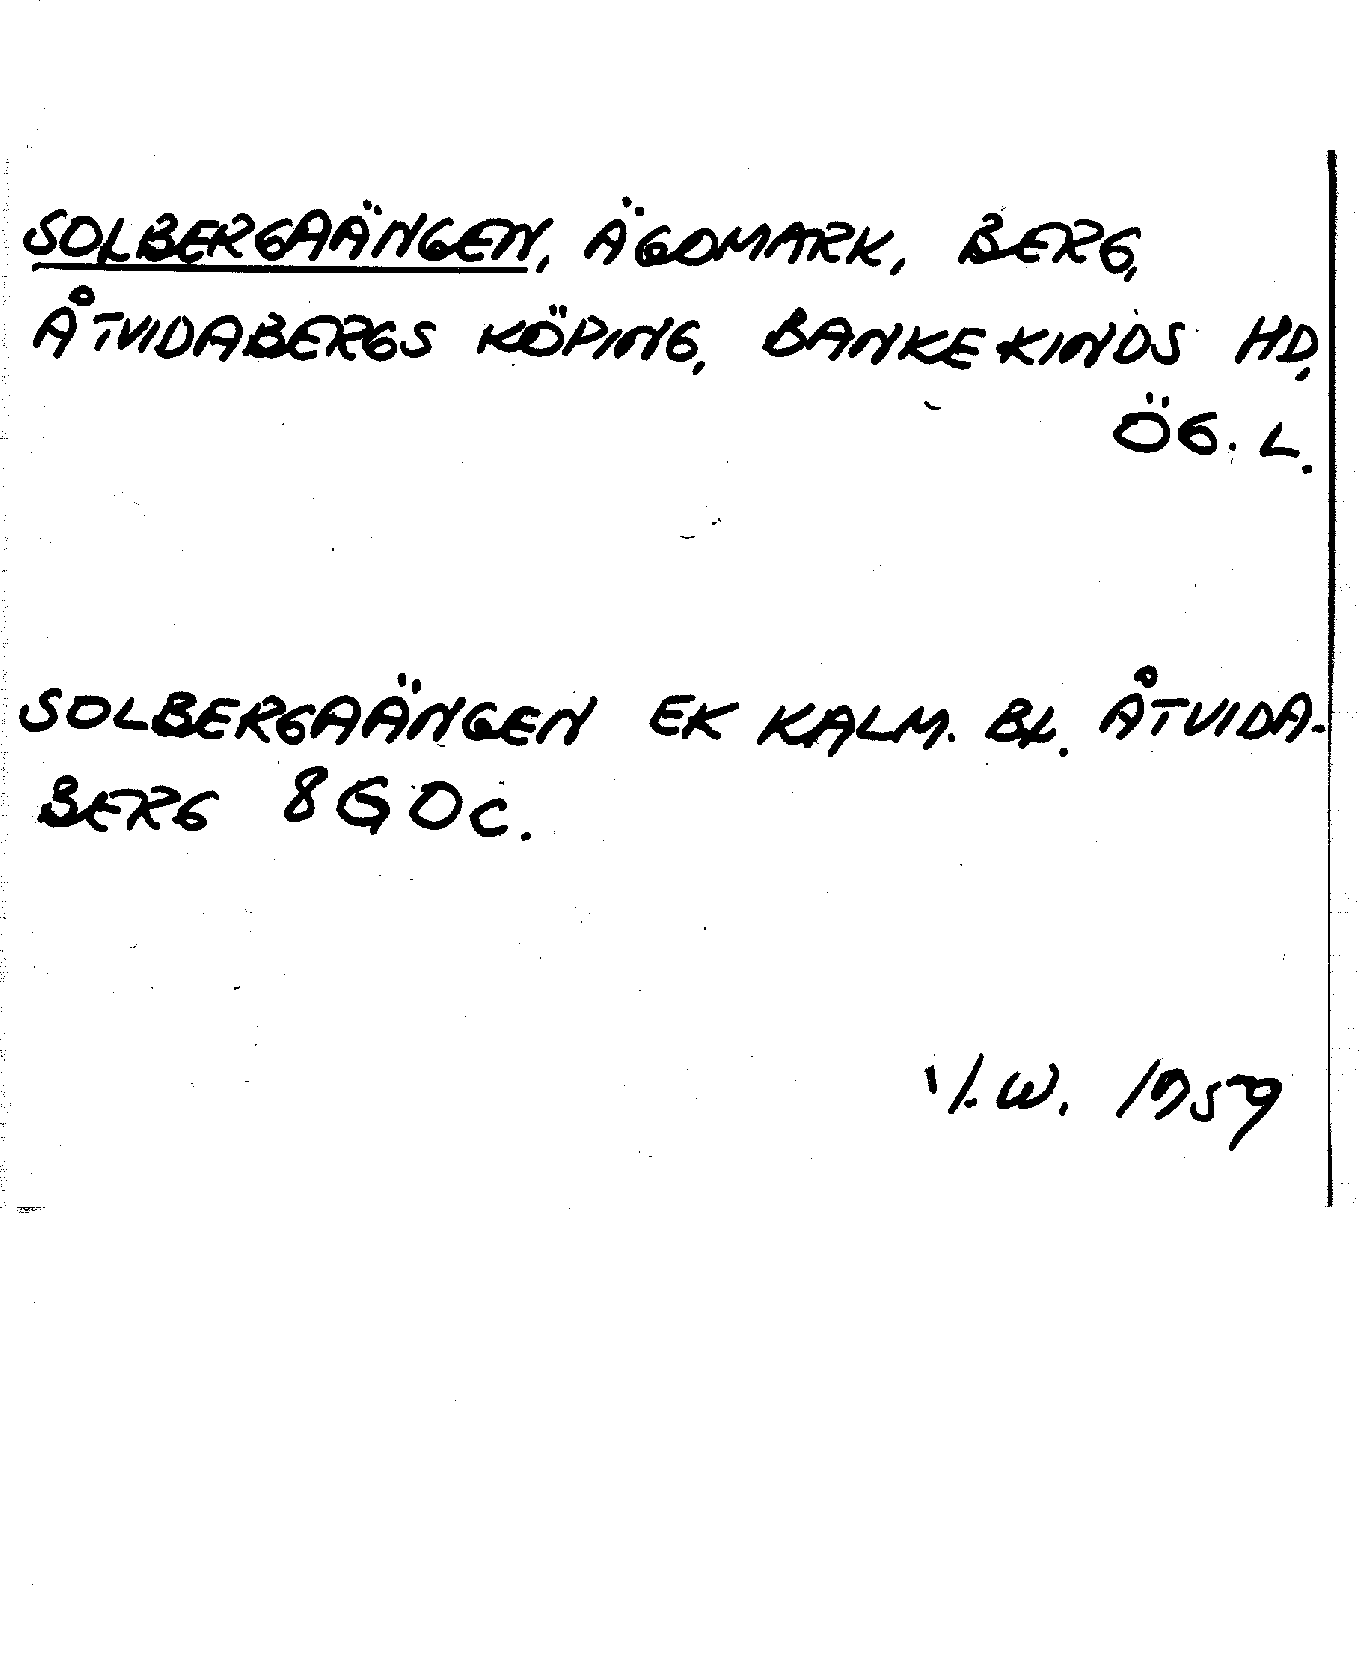 SOLBERGAÄNGEN, ÄGOMARK, BERG,
ÅTVIDABERGS KÖPING, BANKEKINDS HD,
ÖG. L.
SOLBERGAÄNGEN EK KALM. BL. ÅTVIDA-
BERG 8G0c.
1959